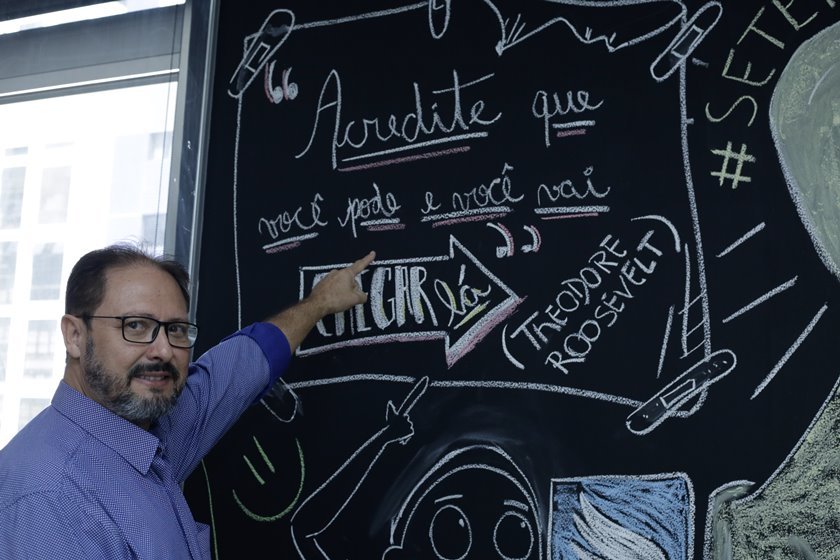 “Acredite que
você pode e você vai
CHEGAR lá”
(THEODORE
ROOSEVELT)
#SETE